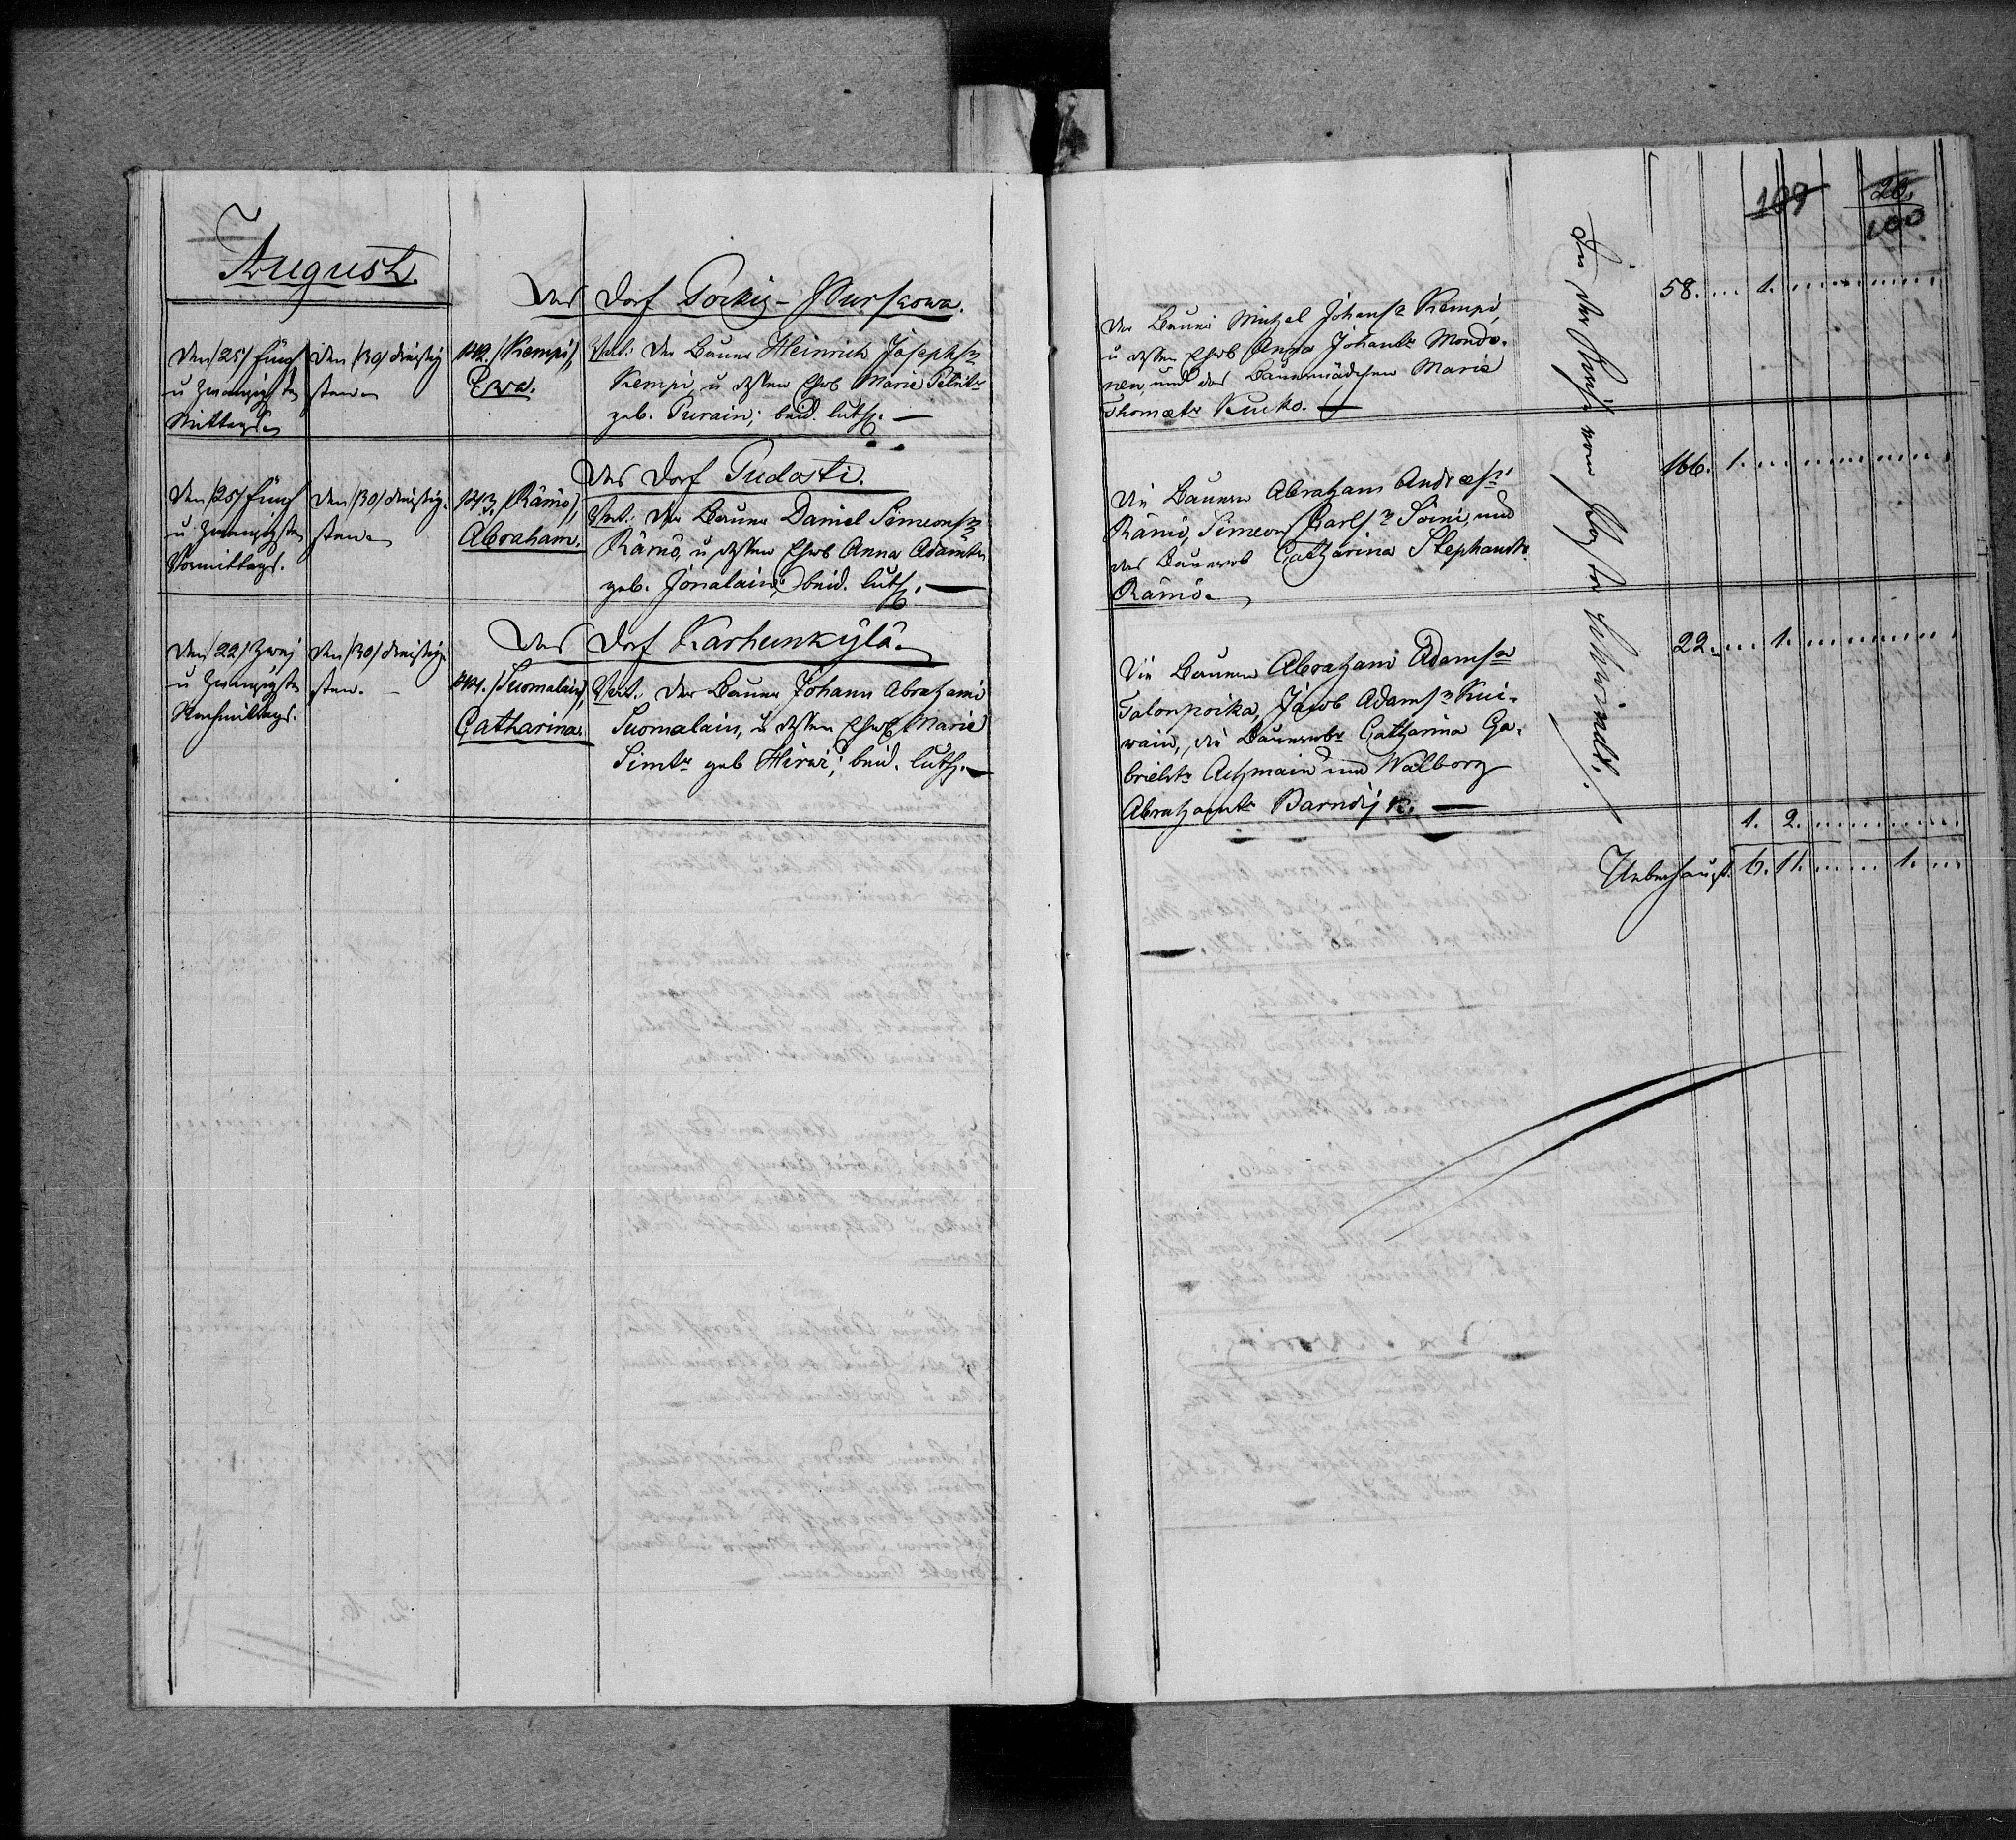 August.
Das Dorf Pockig-Purskowa.
Den /25/ fünf
u zwanzigsten
Mittags.
Den /30/ dreißig
sten
142. /Kempi/,
Ewa.
Vat: Der Bauer Heinrich Josephsn
Kempi, u dessen Ehwb Marie Petritr
geb. Purain; beid. luth. —
Das Dorf Pudosti.
Den /25/ fünf
u zwanzigsten
Vormittags.
Den /30/ dreißig-
sten
143. /Rämö/,
Abraham.
Vat: Der Bauer Daniel Simeonsn
Rämö, u dessen Ehwb Anna Adamtr
geb. Jonalain; beid. luth. —
Das Dorf Karhunkylä.
Den /22/ zwei
u zwanzigsten
Nachmittags.
Den /30/ dreißig-
sten. —
144. /Suomalain/,
Catharina.
Vat: Der Bauer Johann Abrahams
Suomalain, u dessen Ehwb Marie
Simtr geb Hirwi; beid. luth. —
109 20.
100
Der Bauer Michel Johansn Kempi,
u dessen Ehwb Anna Johantr Mondo-
nen, und das Bauermädchen Maria
Thomatr Kucko. —
58. ... 1. ...
Die Bauern Abraham Andreasn
Rämö, Simeon Carlsn Soini, und
das Bauerwb Catharina Stephantr
Rämö.
166. 1. ...
Die Bauern Abraham Adamsn
Talonpoika, Jacob Adamsn Kui-
wain, die Bauernwbr Catharina Ga-
brieltr Achmain und Walborg
Abrahamtr
22. ... 1. ...
1. 2. ...
Ueberhaupt. 6. 11. ... 1. ...